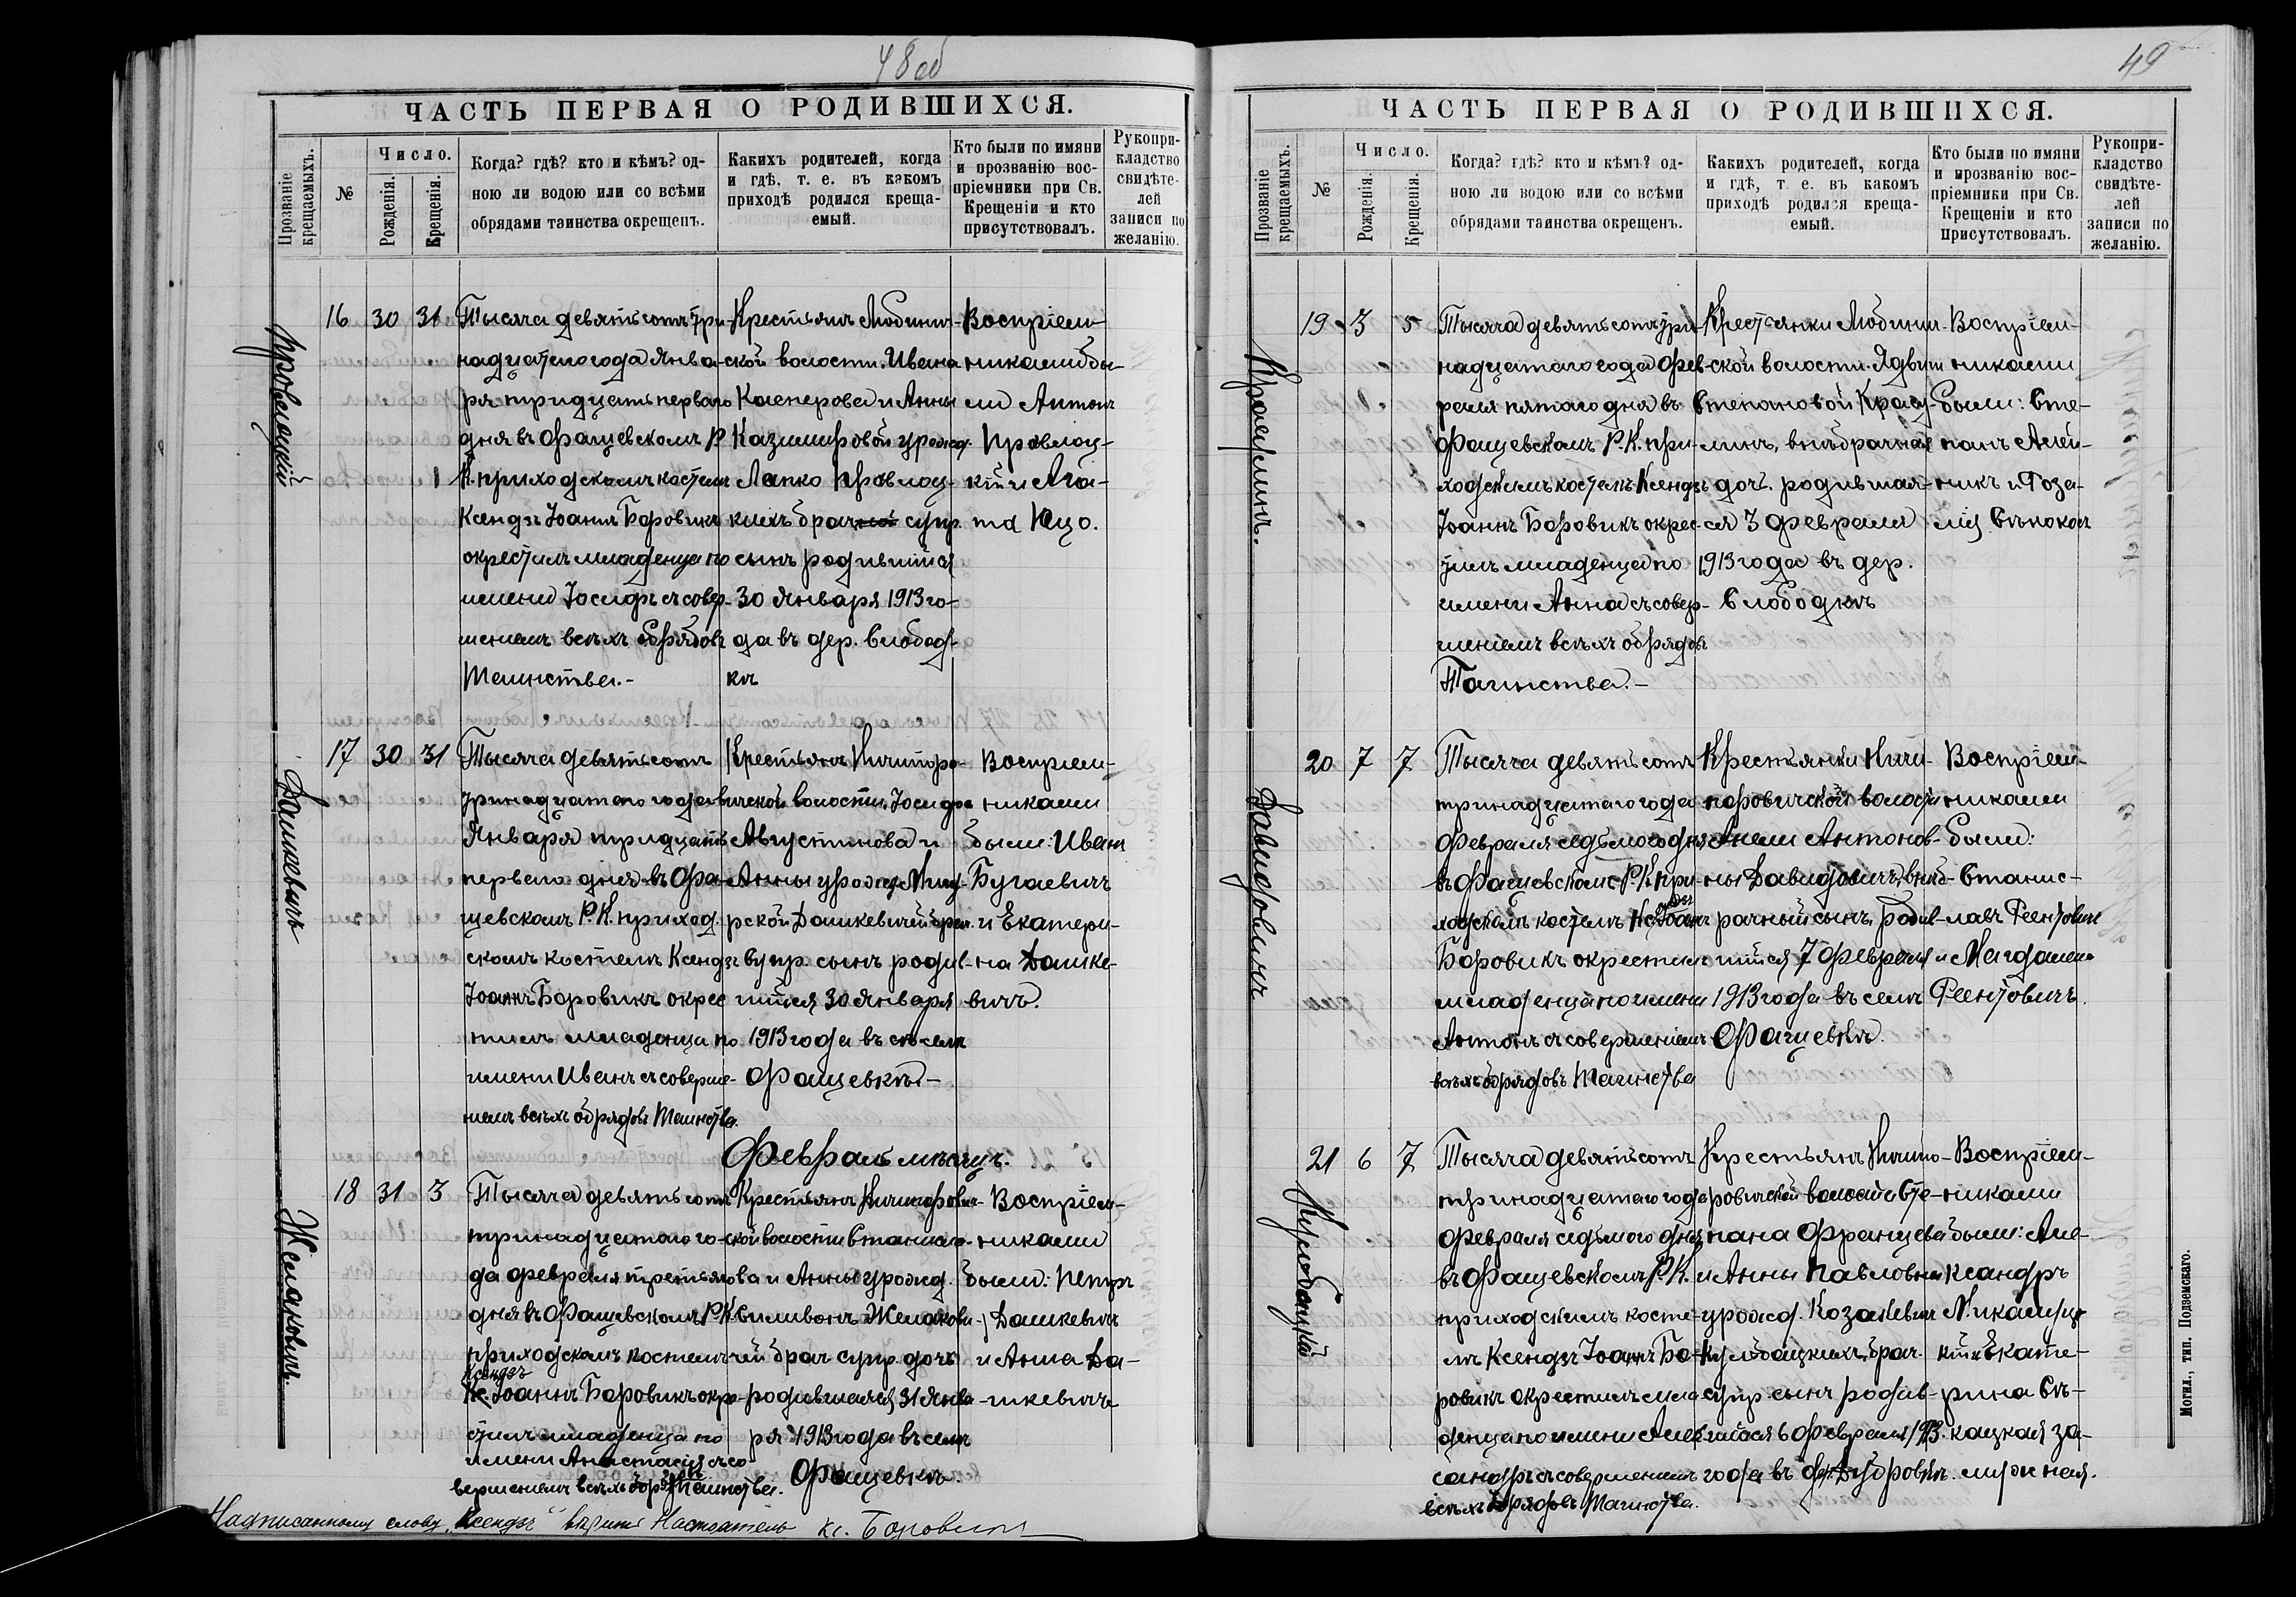 48 об
ЧАСТЬ ПЕРВАЯ О РОДИВШИХСЯ.
Прозваніе крещаемыхъ.
№
Число.
Рожденія.
Крещенія.
Когда? гдѣ? кто и кѣмъ? од-
ною ли водою или со всѣми
обрядами таинства окрещенъ.
Какихъ родителей, когда
и гдѣ, т. е. въ какомъ
приходѣ родился креща-
емый.
Кто были по имяни
и прозванію вос-
пріемники при Св.
Крещеніи и кто
присутствовалъ.
Рукопри-
кладство
свидѣте-
лей
записи по
желанію.
16 30 31
Тысяча девятьсотъ три-
надцатого года Янва-
ря тридцать перваго
дня въ Фащевскомъ Р.
К. приходскомъ костелѣ
Ксендзъ Іоаннъ Боровикъ
окрестилъ младенца по
имени Іосифъ съ совер-
шеніемъ всѣхъ обрядовъ
Таинства.-
Крестьянъ Любинич-
ской волости. Ивана
Касперова и Анны
Казимировой урожд.
Лапко
кихъ брач супр.
сынъ родившійся
30 Января 1913 го-
да въ дер. Слобод-
кѣ
Воспріем-
никами бы-
ли Антонъ
кій и Ага-
та Юцо.
Дашкевичъ
17 30 31
Тысяча девятьсотъ
тринадцатого года
Января тридцать
перваго дня въ Фа-
щевскомъ Р.К. приход-
скомъ костелѣ Ксендзъ
Іоаннъ Боровикъ окрес
тилъ младенца по
имени Иванъ съ соверше-
ніемъ всѣхъ обрядовъ Таинства.
Крестьянъ Ничипоро-
вичской волости, Іосифа
Августинова и
Анны урожд.
рской Дашкевичей брач.
супр. сынъ родив-
шійся 30 Января
1913 года въ селѣ
Фащевкѣ-
Воспріем-
никами
были: Иванъ
Бугаевичъ
и Екатери-
на Дашке-
вичъ.
Февраль мѣсяцъ.
Желаковичъ.
18 31 3
Тысяча девятьсотъ
тринадцатого го-
да февраля третьяго
дня въ Фащевскомъ Р.К.
приходскомъ костелѣ
Ксендзъ
Іоаннъ Боровикъ окре-
стилъ младенца по
имени Анастасія съ со-
вершеніемъ всѣхъ обряд. Таинства.
Крестьянъ Ничипорович-
ской волости Станисла-
ва и Анны урожд.
Силивонъ Желакови-
чей брач супр. дочь
родившаяся 31 Янва-
ря 1913 года въ селѣ
Фащевкѣ.
Воспріем-
никами
были: Петръ
Дашкевичъ
и Анна Да-
шкевичъ
Надписанному слову „Ксендзъ" вѣрить Настоятель кс. Боровикъ
49
ЧАСТЬ ПЕРВАЯ О РОДИВШИХСЯ.
Прозваніе крещаемыхъ.
№
Число.
Рожденія.
Крещенія.
Когда? гдѣ? кто и кѣмъ? од-
ною ли водою или со всѣми
обрядами таинства окрещенъ.
Какихъ родителей, когда
и гдѣ, т. е. въ какомъ
приходѣ родился креща-
емый.
Кто были по имяни
и прозванію вос-
пріемники при Св.
Крещеніи и кто
присутствовалъ.
Рукопри-
кладство
свидѣте-
лей
записи по
желанію.
19 3 5
Тысяча девятьсотъ три-
надцатаго года Фев-
раля пятаго дня въ
Фащевскомъ Р.К. при-
ходскомъ костелѣ Ксендзъ
Іоаннъ Боровикъ окрес-
тилъ младенца по
имени Анна съ совер-
шеніемъ всѣхъ обрядовъ
Таинства.-
Крестьянки Любинич-
ской волости. Ядвиги
Степановой
внѣбрачная
дочь. родившая-
ся 3 февраля
1913 года въ дер.
Слободкѣ
Воспріем-
никами
были: Сте-
панъ Алей-
никъ и Роза-
лія
Давидовичъ
20 7 7
Тысяча девятьсотъ
тринадцатаго года
февраля седьмого дня
въ Фащевскомъ Р.К. при-
ходскомъ костелѣ Ксендзъ Іоаннъ
Боровикъ окрестилъ
младенца по имени
Антонъ съ совершеніемъ
всѣхъ обрядовъ Таинства
Крестьянки Ничи-
поровичской волости
Анели Антонов-
ны Давидовичъ, внѣб-
рачный сынъ, родив-
шійся 7 февраля
1913 года въ селѣ
Фащевкѣ.
Воспріем-
никами
были:
Станис-
лавъ Реентовичъ
и Магдалена
Реентовичъ.
Кулобацкій
21 6 7
Тысяча девятьсотъ
тринадцатаго года
февраля седьмого дня
въ Фащевскомъ Р.К.
приходскомъ косте-
лѣ Ксендзъ Іоаннъ Бо-
ровикъ окрестилъ мла
денца по имени Алек
сандръ съ совершеніемъ
всѣхъ обрядовъ Таинства.
Крестьянъ Ничипо-
ровичской волости Сте-
пана Францева
и Анны Павловны
урожд. Козакевичъ
Кулобацкихъ, брач.
супр. сынъ родив-
шійся 6 февраля 1913
года въ дер. Дубровкѣ.
Воспріем-
никами
были: Але-
ксандръ
кій и Екате-
рина Съ-
кацкая за-
мужняя.
Могил., тип. Подземскаго.